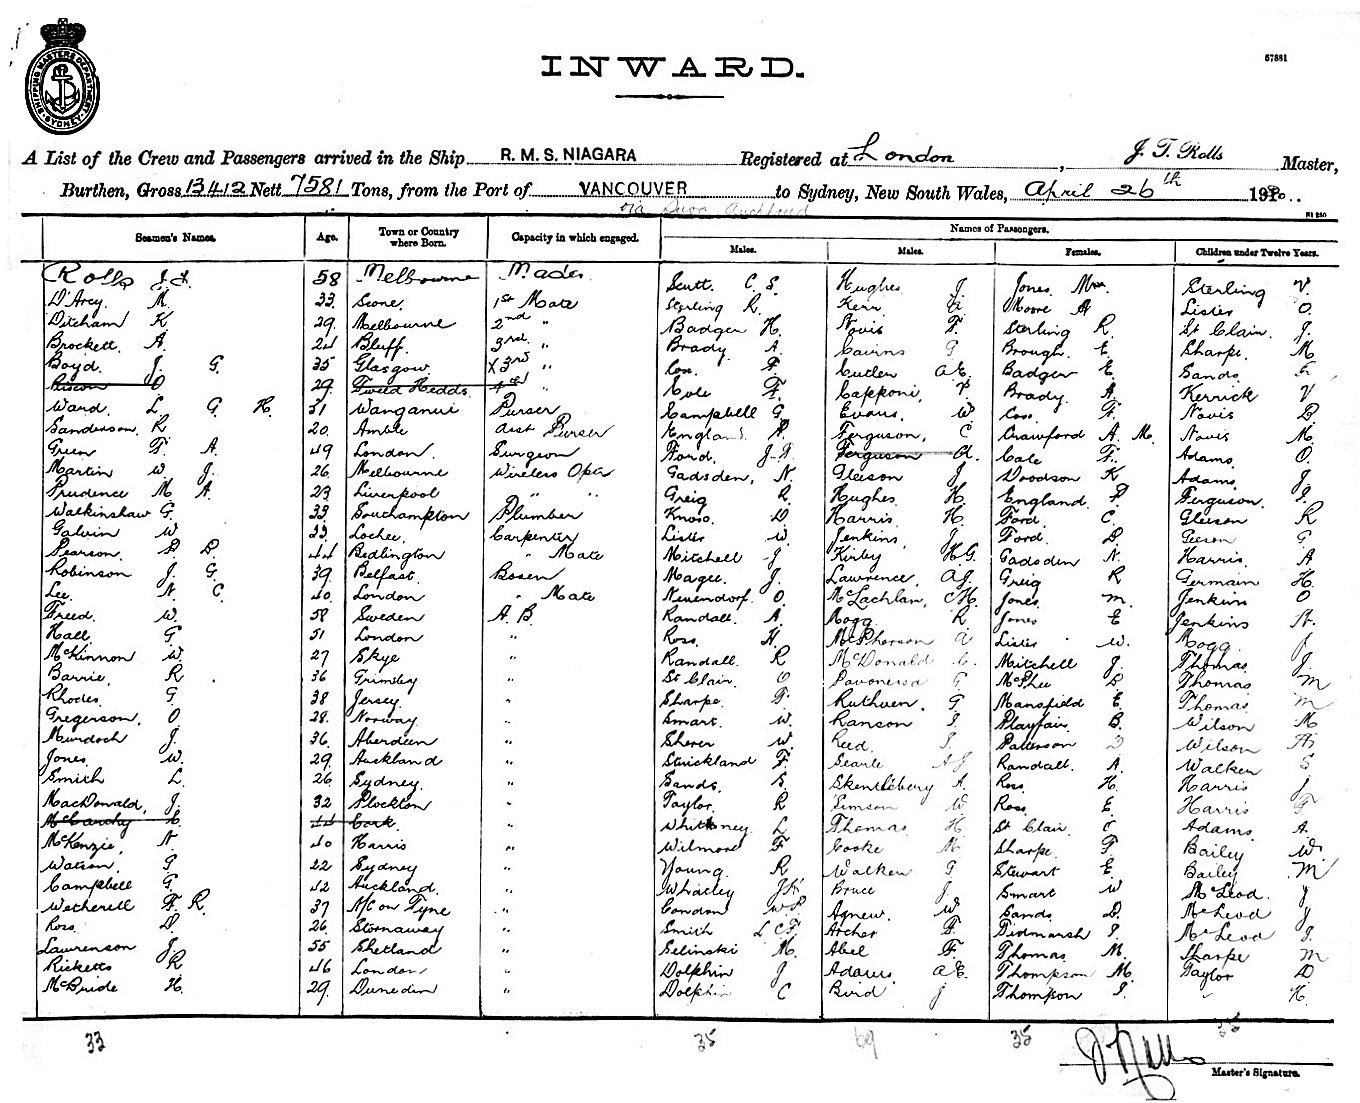 SHIPPING MASTERS DEPARTMENT SYDNEY
INWARD.
57881
A List of the Crew and Passengers arrived in the Ship R. M. S. NIAGARA Registered at London, J. T. Rolls Master,
Burthen, Gross 13412 Nett 7581 Tons, from the Port of VANCOUVER to Sydney, New South Wales, April 26th 19
via Suva Auckland
Names of Passengers.
Seamen's Names. Age. Town or Country where Born. Capacity in which engaged. Males. Males. Females. Children under Twelve Years.
Rolls J. T. 58 Melbourne Master Scutt. C. S. Hughes J. Jones Mrs Sterling V.
D'Arcy. M. 33. Scone. 1st Mate Sterling R. Kerr Moore A Lister O.
Ditcham K 29. Melbourne 2nd " Badger H. Novis F. Sterling R. St Clair. J.
Brockett. A. 24 Bluff. 3rd. " Brady. A. Cairns G Brough. E. Sharpe. M
Boyd. J. G. 35 Glasgow X 3rd " Cox. F. Cutler A E. Badger E. Sands
O 29. Tweed Hedds. 4th " Cole F. Capponi, P. Brady. A. Kerrick V
Ward. L. G. H. 31 Wanganui Purser Campbell G. Evans. W Cox. F. Novis B.
Sanderson. R 20. Amble Asst Purser England. Ferguson, C Crawford A. M. Novis M.
Green F. A. 49 London. Surgeon Ford. J. F. Ferguson A. Cole F. Adams. O.
Martin W. J. 26. Melbourne Wireless Optr Gadsden, N. Gleeson J Woodson K Adams. J.
Prudence M. A. 23 Liverpool " " Greig R. Hughes H. England. Ferguson.
Walkinshaw G. 33 Southampton Plumber Knox. D Harris. H. Ford. C. Gleeson R
Galvin W. 33. Lochee. Carpenter Lister W. Jenkins. J. Ford. Geeson G
Pearson. 44 Bedlington " Mate Mitchell J. Kirby H. G. Gadsden N. Harris. A
Robinson J. G. 39. Belfast. Bosen Magee. J. Lawrence. A. J. Greig R Germain H.
Lee. N. C. 40. London " Mate Neuendorf. O. McLachlan. C H. Jones. M. Jenkins O
Freed. W. 58 Sweden A. B. Randall. A Mogg R Jones E Jenkins N.
Hall. G. 51 London " Ross. H. McPherson A Lister W. Mogg. J.
McKinnon W. 27 Skye " Randall. R McDonald C. Mitchell J. Thomas. J.
Barrie. R 36 Grimsby " St Clair. O Pavonersa G McPhee Thomas M
Rhodes. G. 38 Jersey. " Sharpe. F. Ruthven. G. Mansfield E. Thomas M
Gregerson. O 28. Norway. " Smart. W. Ranson Playfair. B. Wilson M
Murdoch J. 36. Aberdeen " Sherer W. Reed. Patterson D Wilson
Jones W. 29. Auckland " Strickland F. Searle A J Randall. A. Walker S
Smith L. 26 Sydney. " Sands. Skentlebery A. Ross H. Harris J
MacDonald, J. 32 Plockton " Taylor. R Simson W Ross E. Harris F
McCarthy C. 44 Cork. " Whitney. L Thomas H St Clair. C Adams. A.
McKenzie, N. 40 Harris " Wilmore F Cooke M Sharpe. F. Bailey W.
Watson. G. 22 Sydney " Young. R Walker G Stewart E. Bailey M
Campbell G. 42 Auckland. " Whatley J H Bruce J. Smart W McLeod. J
Wetherell F. R. 37 N/C on Tyne " Condon W. P. Agnew. W. Sands D. McLeod J
Ross. D. 26. Stornaway " Smith L C F. Archer F. Tidmarsh McLeod
Lawrenson J. 55 Shetland " Selinski M. Abel F. Thomas M. Sharpe M
Ricketts R 46 London " Dolphin J Adams A E. Thompson M. Taylor D
McBride H. 29. Dunedin " Dolphin C Bird J Thompson " H.
33 35 69 35 35
J T Rolls
Master's Signature.